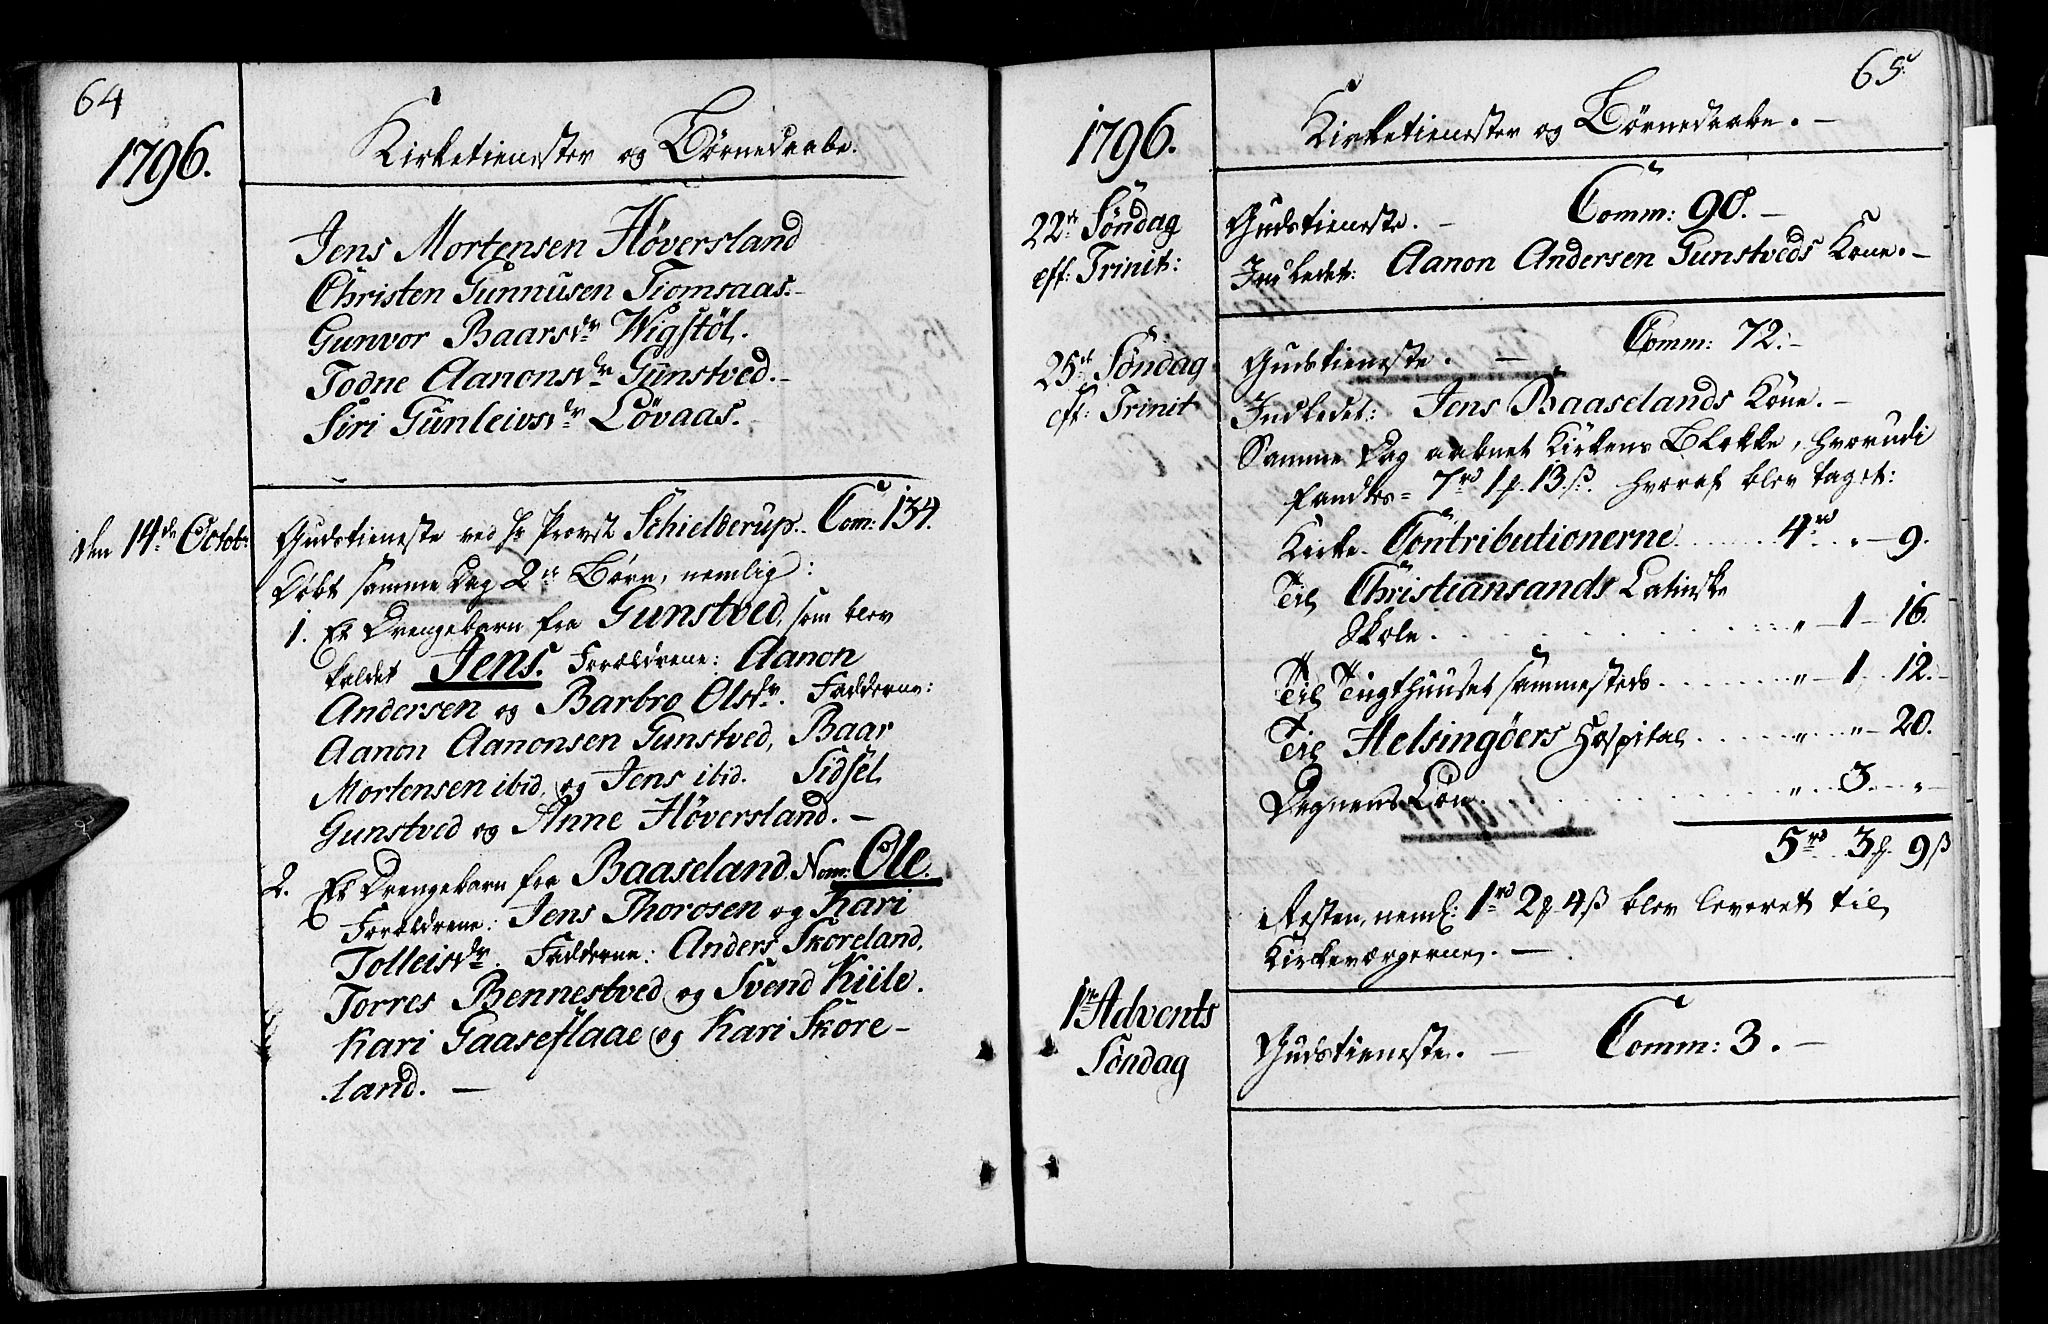 64
1796.
Kirketienester og Børnedaabe.
Jens Mortensen Høversland
Christen Gunnusen Tiomsaas.
Gunvor Baarsdr Wigstøl.
Todne Aanonsdr Gunstved.
Siri Gunleivsdr Løvaas.
den 14de Octobr
Gudstieneste ved Hr Provst Schielderup. Com: 134.
Døbt samme Dag 2de Børn, nemlig:
1. Et Drengebarn fra Gunstved, som blev
kaldet Jens. Forældrene: Aanon
Andersen og Barbro Olsdr. Fadderne:
Aanon Aanonsen Gunstved, Baar
Mortensen ibid. og Jens ibid. Sidsel
Gunstved og Anne Høversland. —
2. Et Drengebarn fra Baaseland. Nom: Ole.
Forældrene: Jens Thorosen og Kari
Tolleisdr. Fadderne: Anders Skoreland,
Torres Bennestved og Svend Kiile.
Kari Gaaseflaae og Kari Skore-
land. —
65
1796.
Kirketienester og Børnedaabe. —
22de Søndag
eff: Trinit:
Gudstieneste. — Comm: 90. —
Indledet: Aanon Andersen Gunstveds Kone. —
25de Søndag
eff: Trinit
Gudstieneste. — Comm: 72. —
Indledet: Jens Baaselands Kone. —
Samme Dag aabnet Kirkens Blokke, hvorudi
fandtes = 7rd 1 p. 13 ß. hvoraf blev taget:
Kirke-Contributionerne ..... 4rd . — 9.
Til Christiansands Latinske
Skole. ..... " — 1 — 16.
Til Tugthuuset sammesteds ..... " — 1 .. 12. —
Til Helsingøers Hospital ..... " .. " — 20.
Degnens Løn. ..... " .. 3. .. " —
5rd .. 3 p. 9 ß
Resten, neml: 1rd 2 p. 4 ß blev leveret til
Kirkeværgerne. —
1ste Advents
Søndag
Gudstieneste. — Comm: 3. —